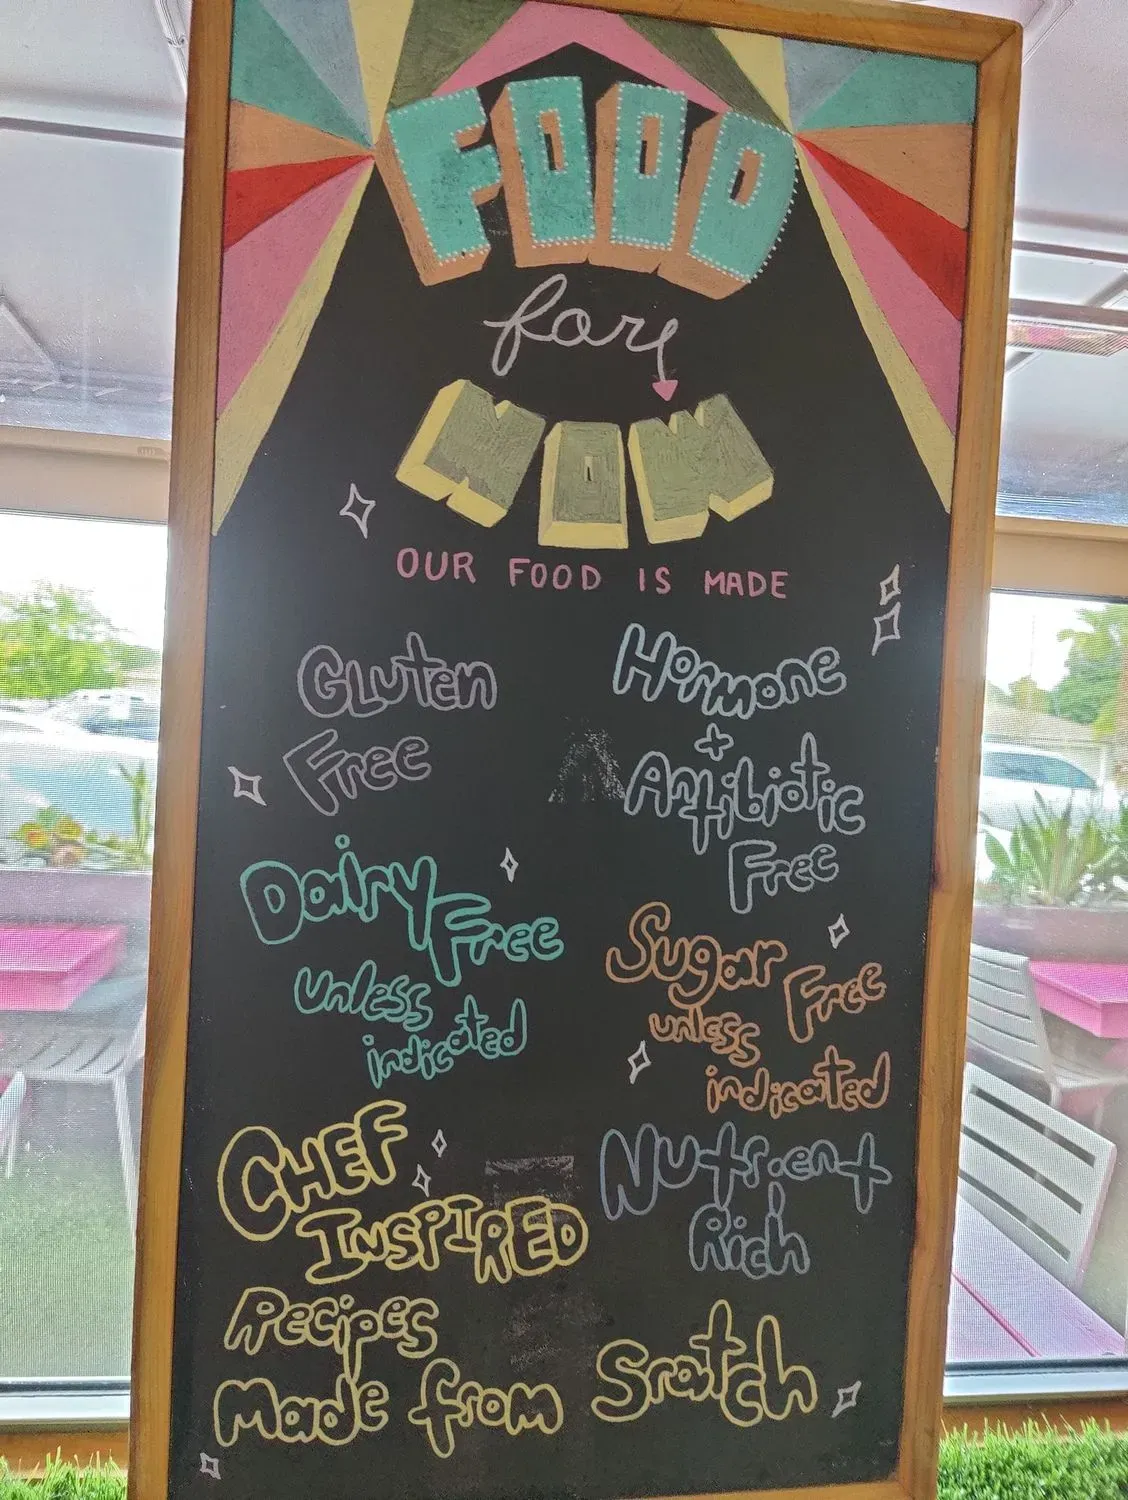 FOOD
for
WOW
OUR FOOD IS MADE
Gluten
Free
Hormone
+
Antibiotic
Free
Dairy
Free
unless
indicated
Sugar
Free
unless
indicated
CHEF
INSPIRED
Nutrient
Rich
Recipes
Made from Sratch